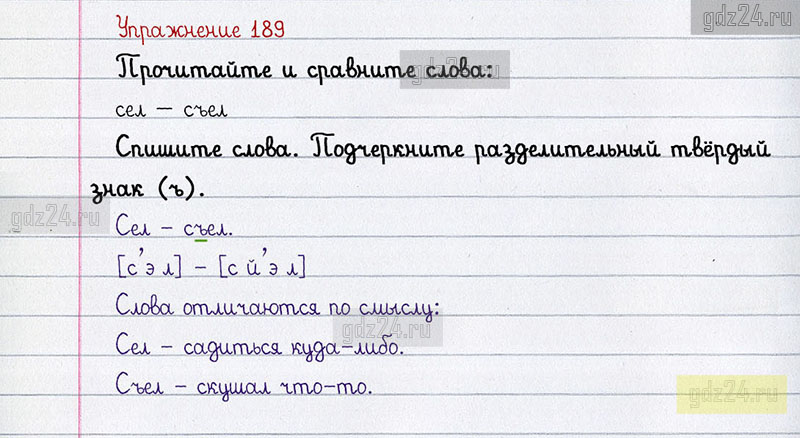 gdz24.ru
Упражнение 189
Прочитайте и сравните слова:
gdz24.ru
сел – съел
Спишите слова. Подчеркните разделительный твёрдый
знак (ъ).
gdz24.ru
Сел – съел.
[с’э л] – [с й’э л]
Слова отличаются по смыслу:
gdz24.ru
Сел – садиться куда-либо.
Съел – скушал что-то.
gdz24.ru